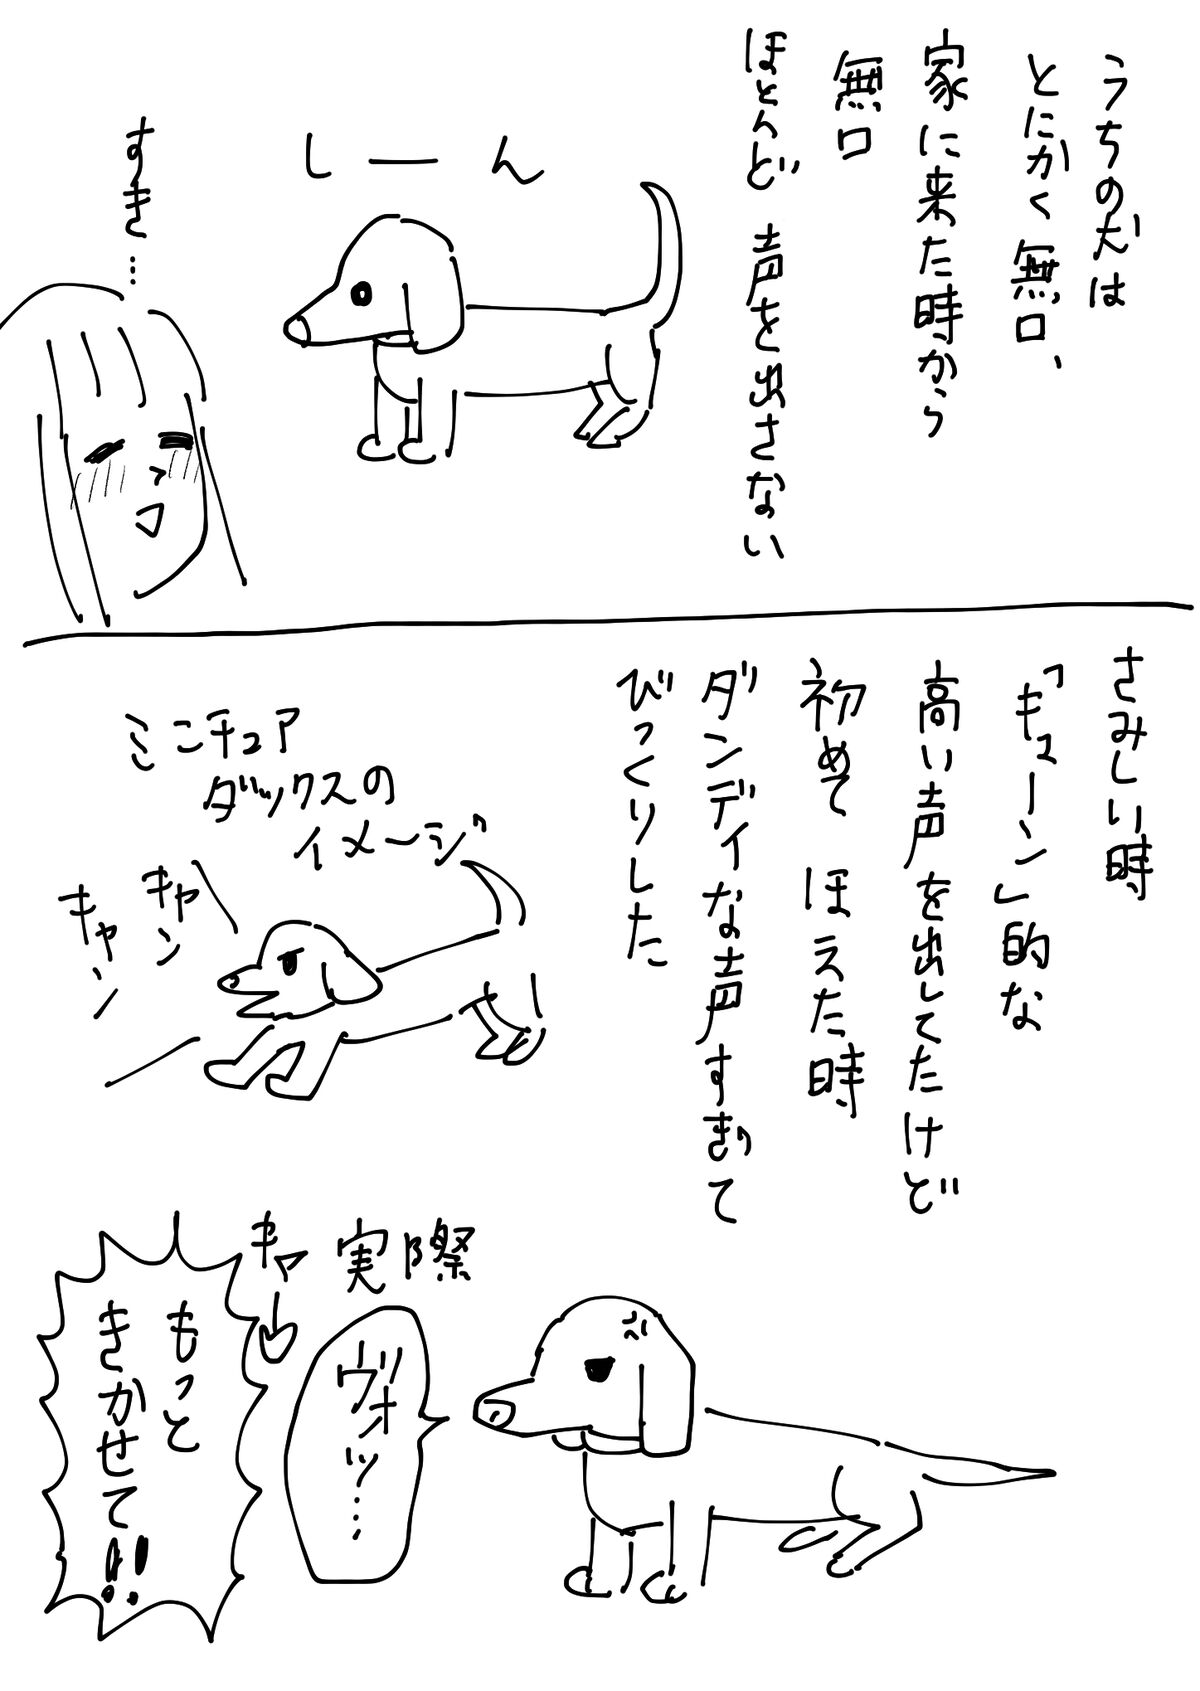 うちの犬は
とにかく無口、
家に来た時から
無口
ほとんど声を出さない
しーん
すき…
さみしい時
「キューン」的な
高い声を出してたけど
初めてほえた時
ダンディな声すぎて
びっくりした
ミニチュア
ダックスの
イメージ
キャン
キャン
実際
ヴォッ……
キャ
もっと
きかせて!!